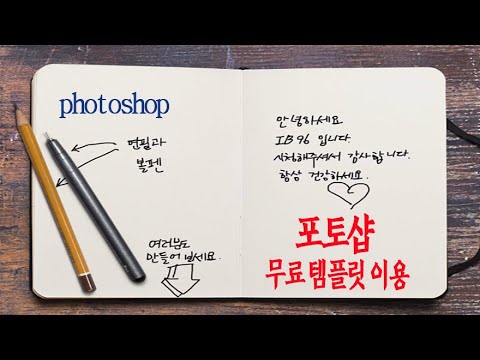 photoshop
연필과
볼펜
여러분도
만들어 보세요.
안녕하세요
IB96 입니다.
시청해주셔서 감사합니다.
항상 건강하세요.
포토샵
무료템플릿이용